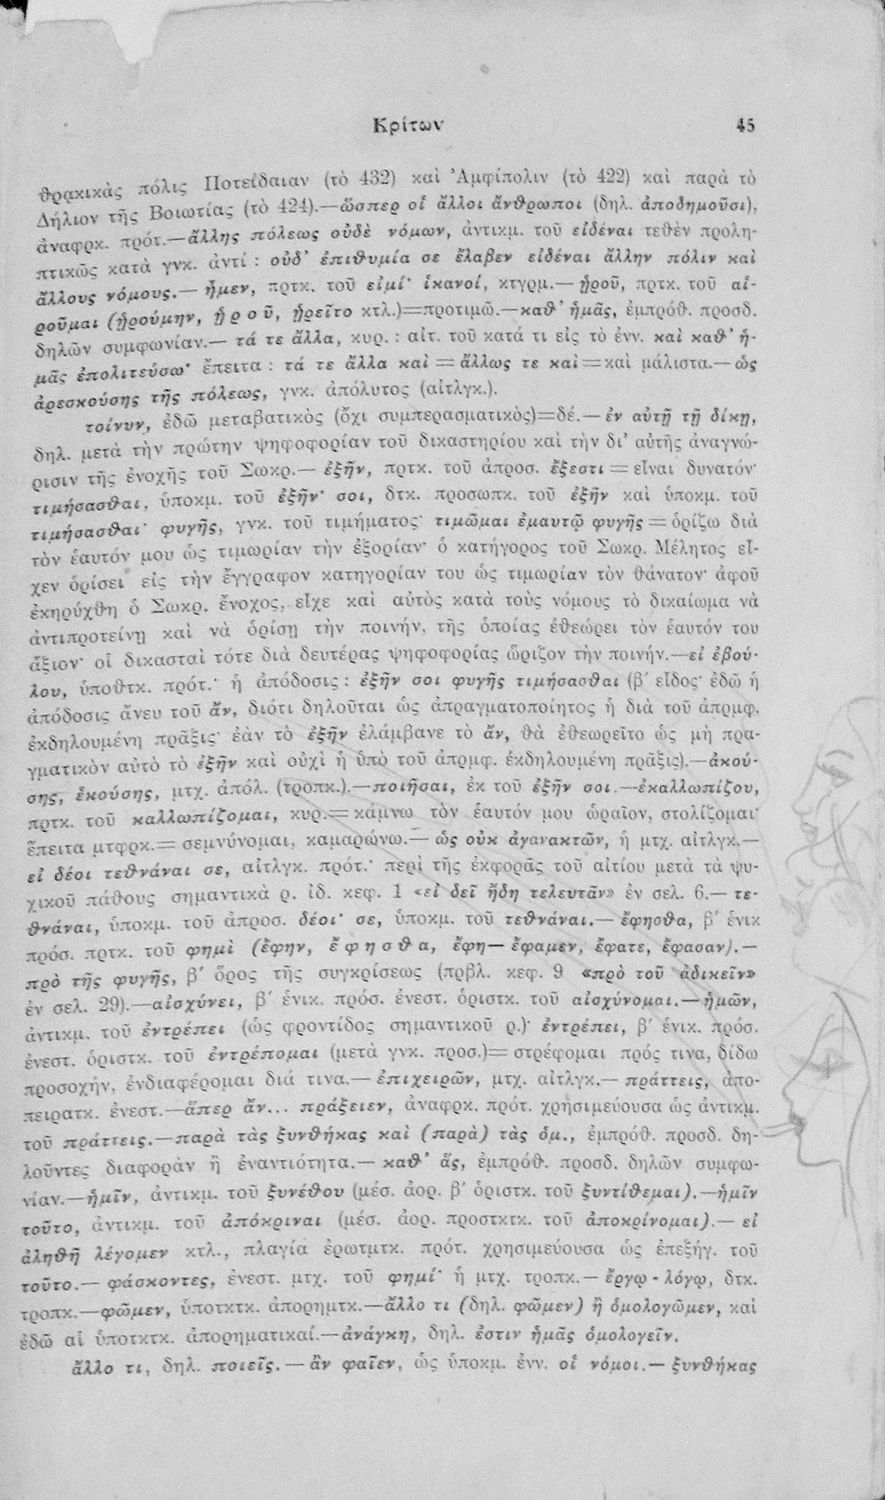 Κρίτων 45
θρᾳκικὰς πόλις Ποτείδαιαν (τὸ 432) καὶ Ἀμφίπολιν (τὸ 422) καὶ παρὰ τὸ
Δήλιον τῆς Βοιωτίας (τὸ 424).—ὥσπερ οἱ ἄλλοι ἄνθρωποι (δηλ. ἀποδημοῦσι),
ἀναφρκ. πρότ.—ἄλλης πόλεως οὐδὲ νόμων, ἀντικμ. τοῦ εἰδέναι τεθὲν προλη-
πτικῶς κατὰ γνκ. ἀντί : οὐδ' ἐπιθυμία σε ἔλαβεν εἰδέναι ἄλλην πόλιν καὶ
ἄλλους νόμους.— ἦμεν, πρτκ. τοῦ εἰμί· ἱκανοί, κτγρμ.— ᾑροῦ, πρτκ. τοῦ αἱ-
ροῦμαι (ᾑρούμην, ᾑροῦ, ᾑρεῖτο κτλ.)=προτιμῶ.—καθ' ἡμᾶς, ἐμπρόθ. προσδ.
δηλῶν συμφωνίαν.— τά τε ἄλλα, κυρ. : αἰτ. τοῦ κατά τι εἰς τὸ ἐνν. καὶ καθ' ἡ-
μᾶς ἐπολιτεύσω· ἔπειτα : τά τε ἄλλα καὶ = ἄλλως τε καὶ=καὶ μάλιστα.— ὡς
ἀρεσκούσης τῆς πόλεως, γνκ. ἀπόλυτος (αἰτλγκ.).
τοίνυν, ἐδῶ μεταβατικὸς (ὄχι συμπερασματικὸς)=δέ.— ἐν αὐτῇ τῇ δίκῃ,
δηλ. μετὰ τὴν πρώτην ψηφοφορίαν τοῦ δικαστηρίου καὶ τὴν δι' αὐτῆς ἀναγνώ-
ρισιν τῆς ἐνοχῆς τοῦ Σωκρ.— ἐξῆν, πρτκ. τοῦ ἀπροσ. ἔξεστι = εἶναι δυνατόν·
τιμήσασθαι, ὑποκμ. τοῦ ἐξῆν· σοι, δτκ. προσωπκ. τοῦ ἐξῆν καὶ ὑποκμ. τοῦ
τιμήσασθαι· φυγῆς, γνκ. τοῦ τιμήματος· τιμῶμαι ἐμαυτῷ φυγῆς = ὁρίζω διὰ
τὸν ἑαυτόν μου ὡς τιμωρίαν τὴν ἐξορίαν· ὁ κατήγορος τοῦ Σωκρ. Μέλητος εἶ-
χεν ὁρίσει εἰς τὴν ἔγγραφον κατηγορίαν του ὡς τιμωρίαν τὸν θάνατον· ἀφοῦ
ἐκηρύχθη ὁ Σωκρ. ἔνοχος, εἶχε καὶ αὐτὸς κατὰ τοὺς νόμους τὸ δικαίωμα νὰ
ἀντιπροτείνῃ καὶ νὰ ὁρίσῃ τὴν ποινήν, τῆς ὁποίας ἐθεώρει τὸν ἑαυτόν του
ἄξιον· οἱ δικασταὶ τότε διὰ δευτέρας ψηφοφορίας ὥριζον τὴν ποινήν.—εἰ ἐβού-
λου, ὑποθτκ. πρότ.· ἡ ἀπόδοσις : ἐξῆν σοι φυγῆς τιμήσασθαι (β' εἶδος· ἐδῶ ἡ
ἀπόδοσις ἄνευ τοῦ ἄν, διότι δηλοῦται ὡς ἀπραγματοποίητος ἡ διὰ τοῦ ἀπρμφ.
ἐκδηλουμένη πρᾶξις· ἐὰν τὸ ἐξῆν ἐλάμβανε τὸ ἄν, θὰ ἐθεωρεῖτο ὡς μὴ πρα-
γματικὸν αὐτὸ τὸ ἐξῆν καὶ οὐχὶ ἡ ὑπὸ τοῦ ἀπρμφ. ἐκδηλουμένη πρᾶξις).—ἀκού-
σης, ἑκούσης, μτχ. ἀπόλ. (τροπκ.).—ποιῆσαι, ἐκ τοῦ ἐξῆν σοι.—ἐκαλλωπίζου,
πρτκ. τοῦ καλλωπίζομαι, κυρ.= κάμνω τὸν ἑαυτόν μου ὡραῖον, στολίζομαι·
ἔπειτα μτφρκ.= σεμνύνομαι, καμαρώνω.— ὡς οὐκ ἀγανακτῶν, ἡ μτχ. αἰτλγκ.—
εἰ δέοι τεθνάναι σε, αἰτλγκ. πρότ.· περὶ τῆς ἐκφορᾶς τοῦ αἰτίου μετὰ τὰ ψυ-
χικοῦ πάθους σημαντικὰ ρ. ἰδ. κεφ. 1 «εἰ δεῖ ἤδη τελευτᾶν» ἐν σελ. 6.— τε-
θνάναι, ὑποκμ. τοῦ ἀπροσ. δέοι· σε, ὑποκμ. τοῦ τεθνάναι.— ἔφησθα, β' ἑνικ
πρόσ. πρτκ. τοῦ φημὶ (ἔφην, ἔφησθα, ἔφη— ἔφαμεν, ἔφατε, ἔφασαν).—
πρὸ τῆς φυγῆς, β' ὅρος τῆς συγκρίσεως (πρβλ. κεφ. 9 «πρὸ τοῦ ἀδικεῖν»
ἐν σελ. 29).—αἰσχύνει, β' ἑνικ. πρόσ. ἐνεστ. ὁριστκ. τοῦ αἰσχύνομαι.—ἡμῶν,
ἀντικμ. τοῦ ἐντρέπει (ὡς φροντίδος σημαντικοῦ ρ.)· ἐντρέπει, β' ἑνικ. πρόσ.
ἐνεστ. ὁριστκ. τοῦ ἐντρέπομαι (μετὰ γνκ. προσ.)= στρέφομαι πρός τινα, δίδω
προσοχήν, ἐνδιαφέρομαι διά τινα.— ἐπιχειρῶν, μτχ. αἰτλγκ.— πράττεις, ἀπο-
πειρατκ. ἐνεστ.—ἅπερ ἄν... πράξειεν, ἀναφρκ. πρότ. χρησιμεύουσα ὡς ἀντικμ.
τοῦ πράττεις.—παρὰ τὰς ξυνθήκας καὶ (παρὰ) τὰς ὁμ., ἐμπρόθ. προσδ. δη-
λοῦντες διαφορὰν ἢ ἐναντιότητα.— καθ' ἅς, ἐμπρόθ. προσδ. δηλῶν συμφω-
νίαν.—ἡμῖν, ἀντικμ. τοῦ ξυνέθου (μέσ. ἀορ. β' ὁριστκ. τοῦ ξυντίθεμαι).—ἡμῖν
τοῦτο, ἀντικμ. τοῦ ἀπόκριναι (μέσ. ἀορ. προστκτκ. τοῦ ἀποκρίνομαι).— εἰ
ἀληθῆ λέγομεν κτλ., πλαγία ἐρωτμτκ. πρότ. χρησιμεύουσα ὡς ἐπεξήγ. τοῦ
τοῦτο.— φάσκοντες, ἐνεστ. μτχ. τοῦ φημί· ἡ μτχ. τροπκ.— ἔργῳ - λόγῳ, δτκ.
τροπκ.—φῶμεν, ὑποτκτκ. ἀπορημτκ.—ἄλλο τι (δηλ. φῶμεν) ἢ ὁμολογῶμεν, καὶ
ἐδῶ αἱ ὑποτκτκ. ἀπορηματικαί.—ἀνάγκη, δηλ. ἐστιν ἡμᾶς ὁμολογεῖν.
ἄλλο τι, δηλ. ποιεῖς.— ἂν φαῖεν, ὡς ὑποκμ. ἐνν. οἱ νόμοι.— ξυνθήκας